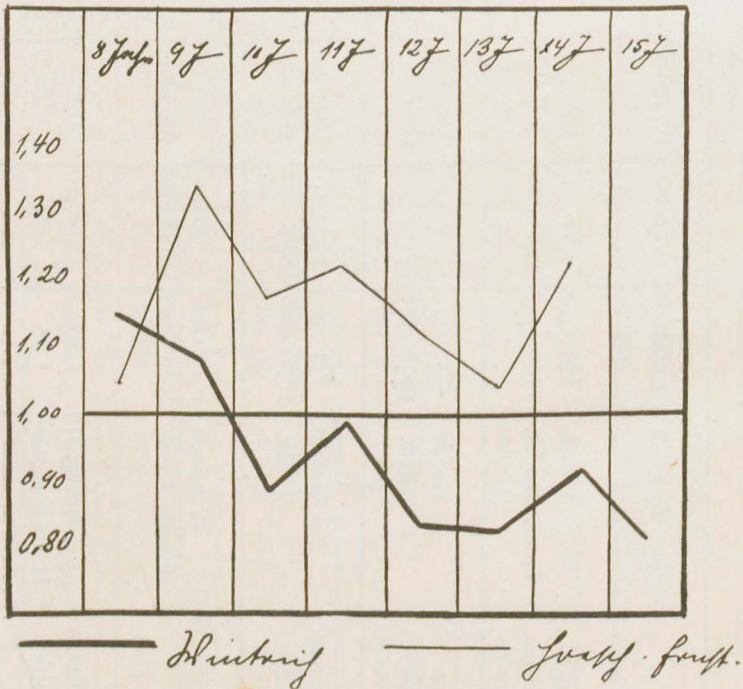 8 Jahr 9 J 10 J 11 J 12 J 13 J 14 J 15 J
1,40
1,30
1,20
1,10
1,00
0,90
0,80
Wintrich Hoesch. Ernst.